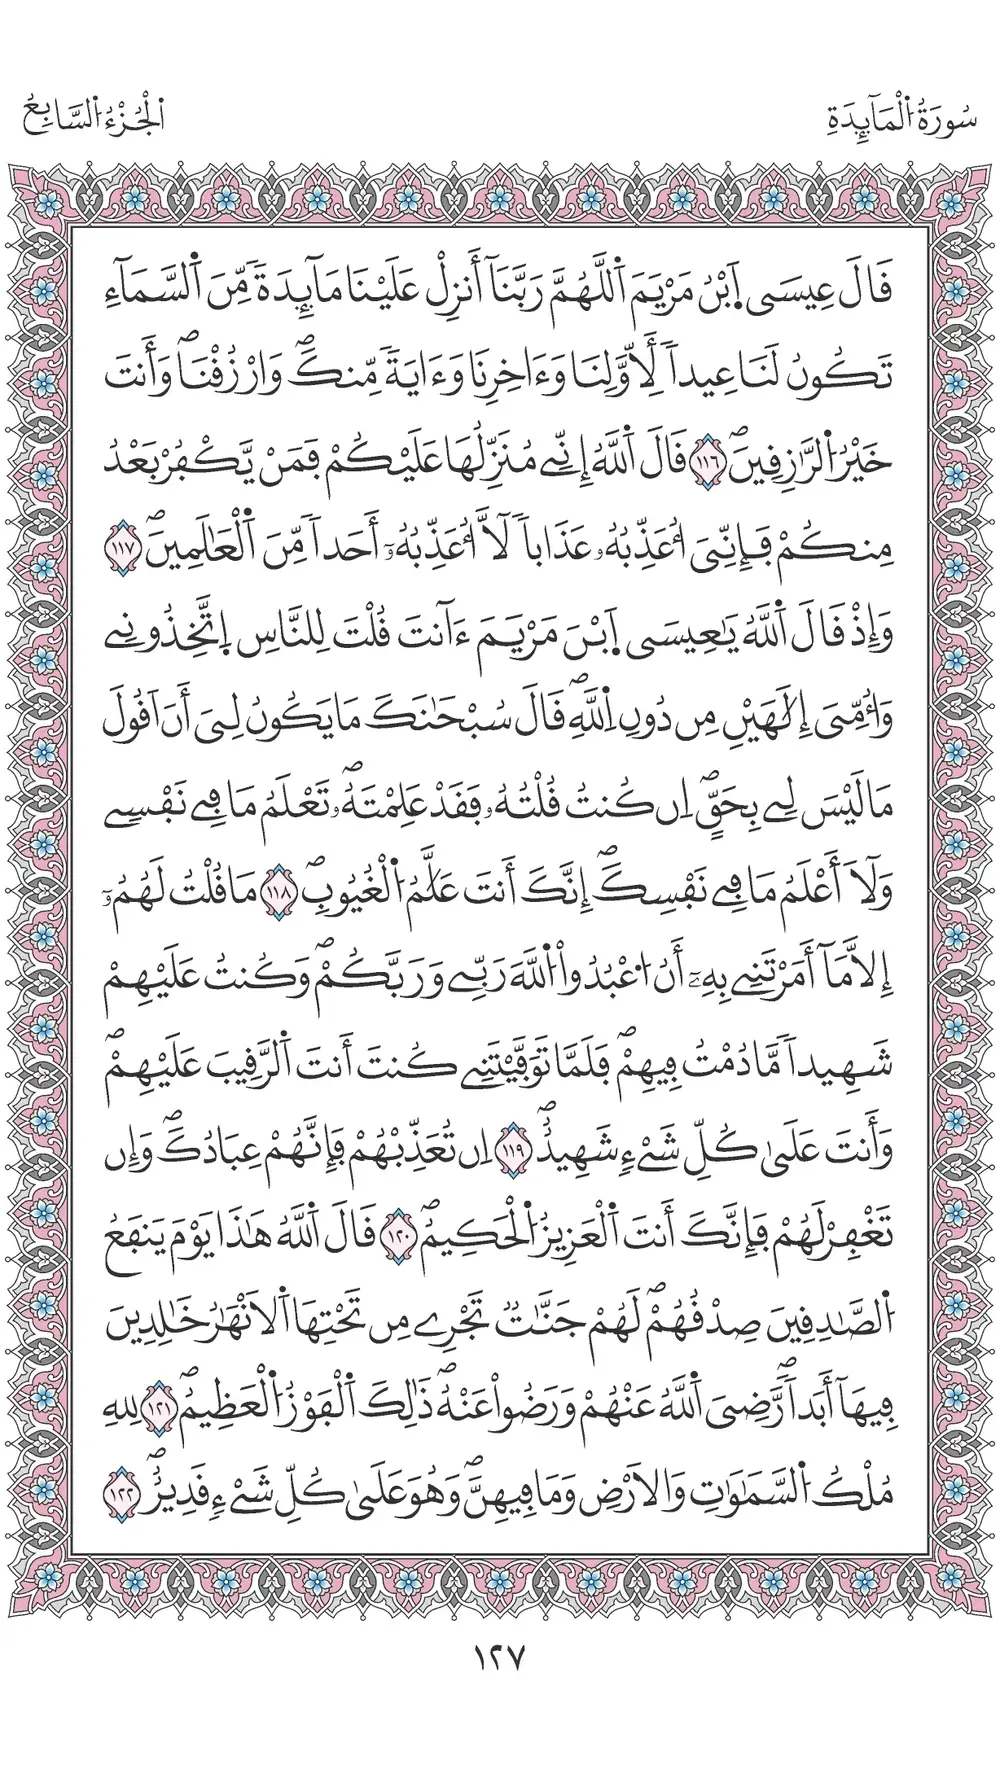 سُورَةُ الْمَآئِدَةِ
الْجُزْءُ السَّابِعُ
قَالَ عِيسَى اَبْنُ مَرْيَمَ اَللَّهُمَّ رَبَّنَآ أَنزِلْ عَلَيْنَا مَآئِدَةً مِّنَ اَلسَّمَآءِ
تَكُونُ لَنَا عِيداً لِّأَوَّلِنَا وَءَاخِرِنَا وَءَايَةً مِّنكَۖ وَارْزُقْنَاۖ وَأَنتَ
خَيْرُ اُلرَّٰزِقِينَۖ ١١٦ قَالَ اَللَّهُ إِنِّي مُنَزِّلُهَا عَلَيْكُمْ فَمَنْ يَّكْفُرْ بَعْدُ
مِنكُمْ فَإِنِّىَ أُعَذِّبُهُۥ عَذَاباً لَّآ أُعَذِّبُهُۥٓ أَحَداً مِّنَ اَلْعَٰلَمِينَۖ ١١٧
وَإِذْ قَالَ اَللَّهُ يَٰعِيسَى اَبْنَ مَرْيَمَ ءَآنتَ قُلْتَ لِلنَّاسِ اِتَّخِذُونِي
وَأُمِّىَ إِلَٰهَيْنِ مِن دُونِ اِللَّهِۖ قَالَ سُبْحَٰنَكَ مَا يَكُونُ لِىَ أَنَ اَقُولَ
مَا لَيْسَ لِي بِحَقٍّۖ اِن كُنتُ قُلْتُهُۥ فَقَدْ عَلِمْتَهُۥۖ تَعْلَمُ مَا فِي نَفْسِي
وَلَآ أَعْلَمُ مَا فِي نَفْسِكَۖ إِنَّكَ أَنتَ عَلَّٰمُ اُلْغُيُوبِۖ ١١٨ مَا قُلْتُ لَهُمُۥٓ
إِلَّا مَآ أَمَرْتَنِي بِهِۦٓ أَنُ اُعْبُدُواْ اُللَّهَ رَبِّي وَرَبَّكُمْۖ وَكُنتُ عَلَيْهِمْ
شَهِيداً مَّا دُمْتُ فِيهِمْۖ فَلَمَّا تَوَفَّيْتَنِي كُنتَ أَنتَ اَلرَّقِيبَ عَلَيْهِمْۖ
وَأَنتَ عَلَىٰ كُلِّ شَيْءٍ شَهِيدٌۖ ١١٩ اِن تُعَذِّبْهُمْ فَإِنَّهُمْ عِبَادُكَۖ وَإِن
تَغْفِرْ لَهُمْ فَإِنَّكَ أَنتَ اَلْعَزِيزُ اُلْحَكِيمُۖ ١٢٠ قَالَ اَللَّهُ هَٰذَا يَوْمَ يَنفَعُ
اُلصَّٰدِقِينَ صِدْقُهُمْۖ لَهُمْ جَنَّٰتٌ تَجْرِي مِن تَحْتِهَا اَلْأَنْهَٰرُ خَٰلِدِينَ
فِيهَآ أَبَداًۖ رَّضِىَ اَللَّهُ عَنْهُمْ وَرَضُواْ عَنْهُۖ ذَٰلِكَ اَلْفَوْزُ اُلْعَظِيمُۖ ١٢١ لِلهِ
مُلْكُ اُلسَّمَٰوَٰتِ وَالْأَرْضِ وَمَا فِيهِنَّۖ وَهُوَ عَلَىٰ كُلِّ شَيْءٍ قَدِيرٌۖ ١٢٢
١٢٧